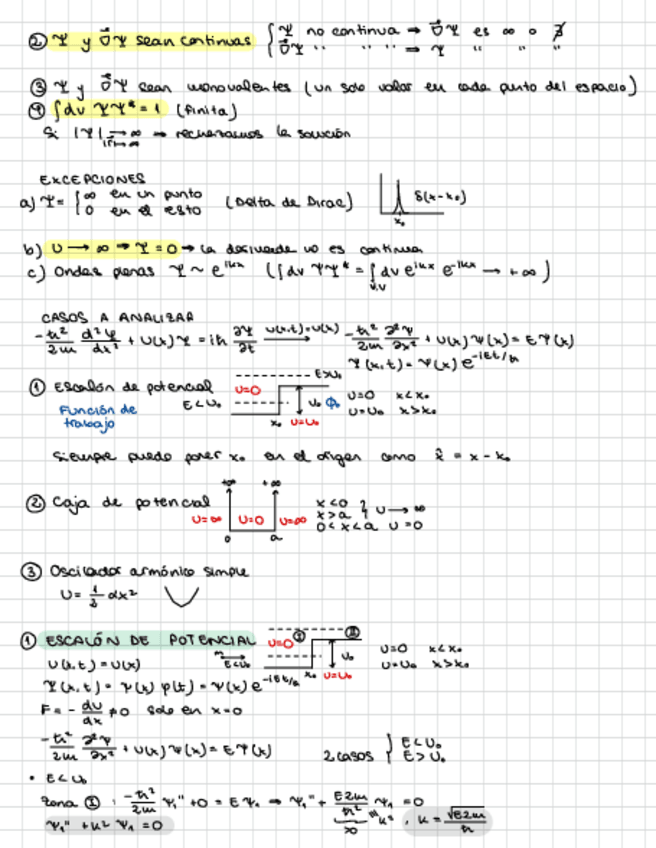 ② Ψ y ∇⃗Ψ sean continuas { Ψ no continua → ∇⃗Ψ es ∞ o ∄
∇⃗Ψ " " → Ψ " "  "
③ Ψ y ∇⃗Ψ sean monovalentes (un solo valor en cada punto del espacio)
④ ∫dv ΨΨ* = 1 (finita)
Si |Ψ| |r|→∞ → ∞ ⇒ rechazamos la solución
EXCEPCIONES
a) Ψ = { ∞ en un punto
0 en el resto (Delta de Dirac) δ(x-x₀)
x₀
b) U → ∞ ⇒ Ψ = 0 → la derivada no es continua
c) Ondas planas Ψ ~ e^ikx (∫dv ΨΨ* = ∫dv e^ikx e^-ikx → +∞)
CASOS A ANALIZAR
-ħ²/2m d²Ψ/dx² + U(x)Ψ = iħ ∂Ψ/∂t U(x,t)=U(x) → -ħ²/2m ∂²ψ/∂x² + U(x)ψ(x) = Eψ(x)
Ψ(x,t) = ψ(x) e^-iEt/ħ
① Escalón de potencial U=0 E>U₀
Función de trabajo E<U₀ U₀ Φ₀ U=0 x<x₀
x₀ U=U₀ U=U₀ x>x₀
Siempre puedo poner x₀ en el origen como x̂ = x - x₀
② Caja de potencial +∞ +∞ x<0
U=∞ U=0 U=∞ x>a } U → ∞
0 a 0<x<a U=0
③ Oscilador armónico simple
U = ½ αx²
① ESCALÓN DE POTENCIAL U=0 Ⅰ Ⅱ U=0 x<x₀
U(x,t) = U(x) m E<U₀ U₀ U=U₀ x>x₀
Ψ(x,t) = ψ(x) φ(t) = ψ(x) e^-iEt/ħ x₀ U=U₀
F = - dU/dx ≠ 0 solo en x=0
-ħ²/2m ∂²ψ/∂x² + U(x)ψ(x) = Eψ(x) 2 casos { E<U₀
E>U₀
• E<U₀
Zona Ⅰ: -ħ²/2m ψ₁'' + 0 = Eψ₁ ⇒ ψ₁'' + E2m/ħ² ψ₁ = 0
ψ₁'' + k² ψ₁ = 0 >0 = k², k = √E2m/ħ